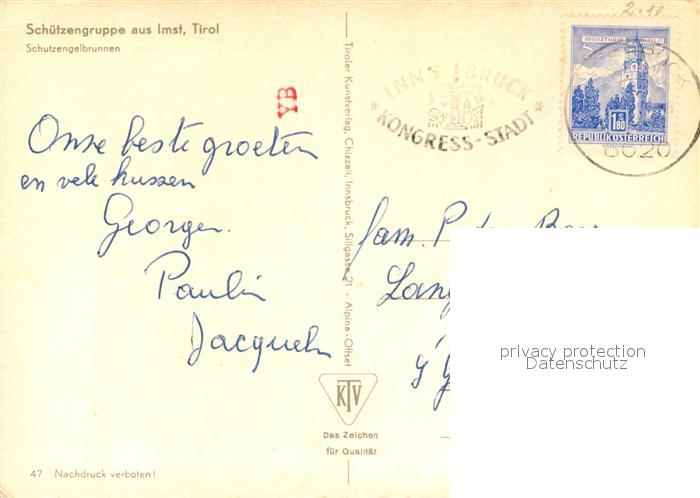 Schützengruppe aus Imst, Tirol
Schutzengelbrunnen
YB
Onze beste groeten
en vele kussen
Georges.
Paulin
Tiroler Kunstverlag, Chizzali, Innsbruck, Sillgasse 21 - Alpina-Offset
KTV
Das Zeichen
für Qualität
47 Nachdruck verboten!
INNSBRUCK
* KONGRESS-STADT *
MÜNZTURM
1 S 80
REPUBLIK ÖSTERREICH
6020
fam. P. de
privacy protection
Datenschutz